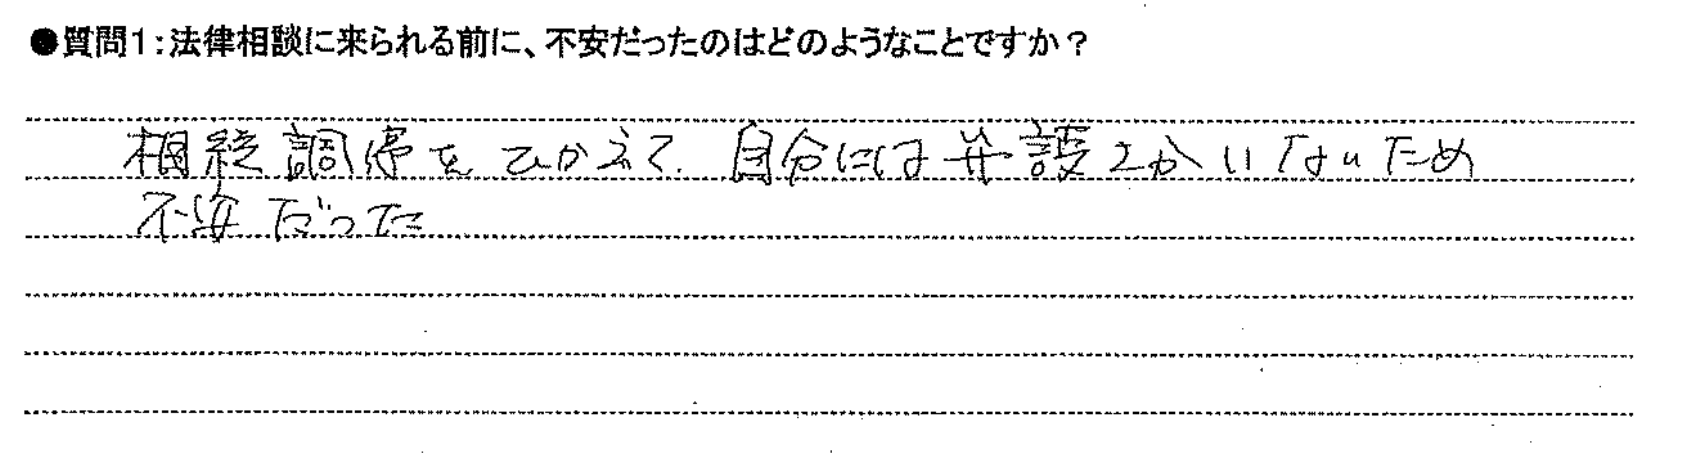 ●質問1:法律相談に来られる前に、不安だったのはどのようなことですか?
相続調停をひかえて、自分には弁護士がいないため
不安だった